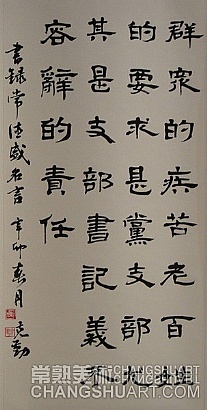 群衆的疾苦老百姓
的要求是黨支部尤
其是支部書記義不
容辭的責任
書録常德盛名言 辛卯春月
常熟美术